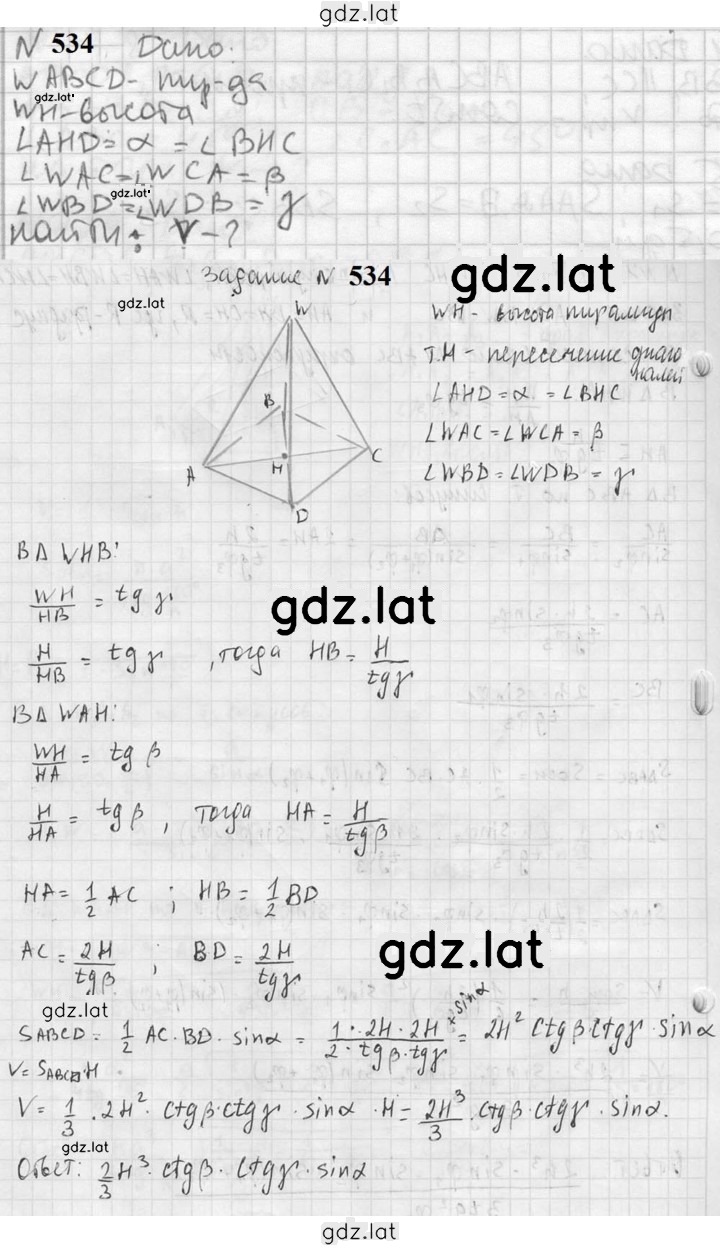 gdz.lat
N 534 Дано:
WABCD- пир-да
gdz.lat
WH-высота
∠AHD=α = ∠BHC
∠WAC=∠WCA = β
gdz.lat
∠WBD=∠WDB = γ
найти: V-?
Задание N 534
gdz.lat
gdz.lat
W
B
A
H
C
D
WH - высота пирамиды
т.H - пересечение диаго
налей
∠AHD = α = ∠BHC
∠WAC=∠WCA = β
∠WBD=∠WDB = γ
В∆ WHB:
WH/HB = tg γ
gdz.lat
H/HB = tg γ , тогда HB = H/tgγ
В∆ WAH:
WH/HA = tg β
H/HA = tg β , тогда HA = H/tgβ
HA = 1/2 AC ; HB = 1/2 BD
AC = 2H/tgβ ; BD = 2H/tgγ
gdz.lat
gdz.lat
SABCD = 1/2 AC · BD · sinα = 1·2H·2H/2·tgβ·tgγ × sinα = 2H² ctgβ ctgγ · sinα
V= SABCD·H
V= 1/3 · 2H² · ctgβ·ctgγ · sinα · H = 2H³/3 · ctgβ · ctgγ · sinα.
gdz.lat
Ответ: 2/3 H³ · ctgβ · ctgγ · sinα
gdz.lat